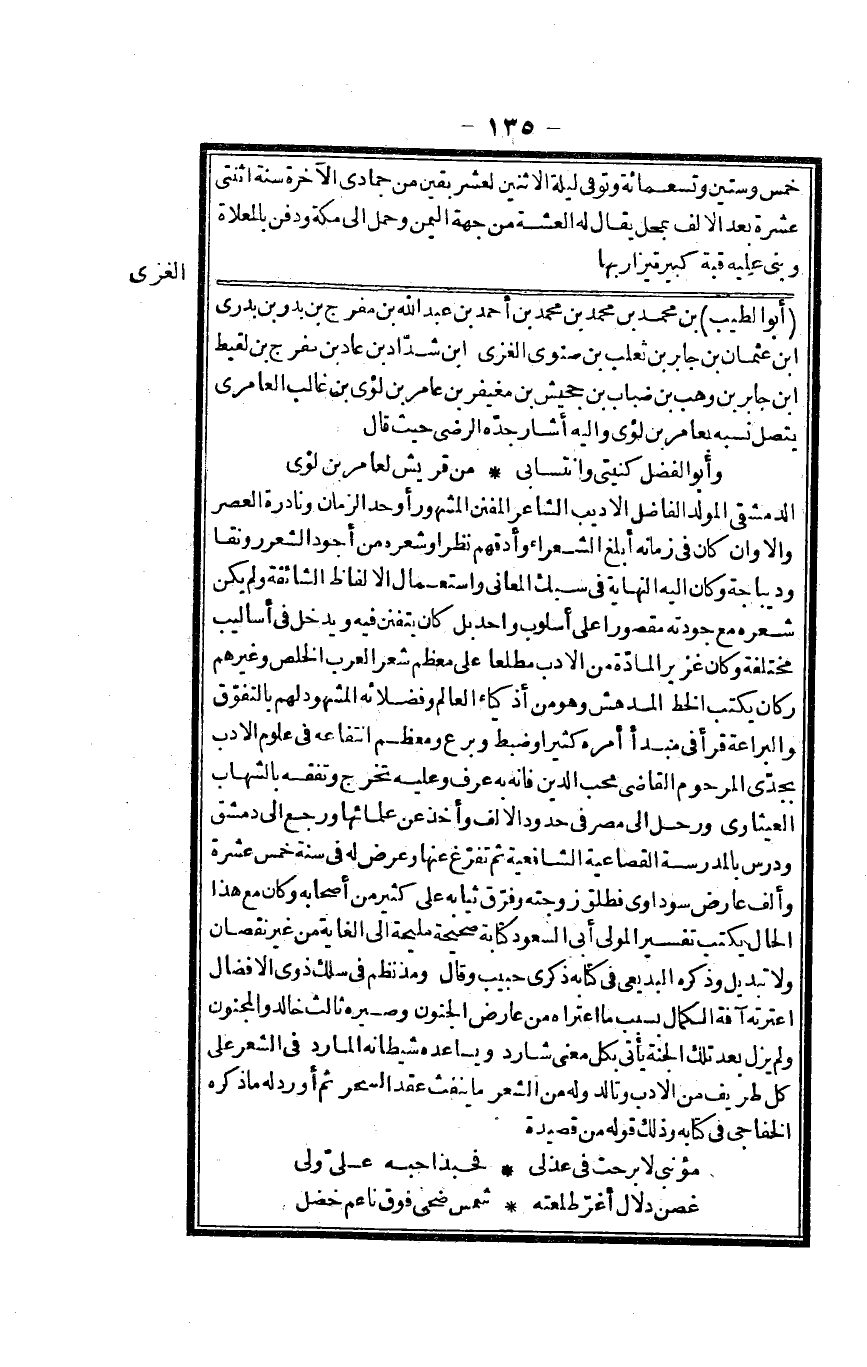 - ١٣٥ -
خمس وستين وتسعمائة وتوفى ليلة الاثنين لعشر بقين من جمادى الآخرة سنة اثنتى
عشرة بعد الالف بمحل يقال له العشة من جهة اليمن وحمل الى مكة ودفن بالمعلاة
وبنى عليه قبة كبيرة يزار بها
الغزى
(أبو الطيب) بن محمد بن محمد بن محمد بن أحمد بن عبد الله بن مفرج بن بدو بن بدرى
ابن عثمان بن جابر بن ثعلب بن صنوى الغزى ابن شداد بن عاد بن مفرج بن لقيط
ابن جابر بن وهب بن ضباب بن جحيش بن مغيفر بن عامر بن لؤى بن غالب العامرى
يتصل نسبه بعامر بن لؤى واليه أشار جده الرضى حيث قال
وأبو الفضل كنيتى وانتسابى * من قريش لعامر بن لؤى
الدمشقى المولد الفاضل الاديب الشاعر المفنن المشهور أوحد الزمان ونادرة العصر
والاوان كان فى زمانه أبلغ الشعراء وأدقهم نظرا وشعره من أجود الشعر رونقا
وديباجة وكان اليه النهاية فى سبك المعانى واستعمال الالفاظ الشائقة ولم يكن
شعره مع جودته مقصورا على أسلوب واحد بل كان يتفنن فيه ويدخل فى أساليب
مختلفة وكان غزير المادّة من الادب مطلعا على معظم شعر العرب الخلص وغيرهم
ركان يكتب الخط المدهش وهو من أذكياء العالم وفضلائه المشهود لهم بالتفوّق
والبراعة قرأ فى مبدأ أمره كثيرا وضبط وبرع ومعظم انتفاعه فى علوم الادب
بجدّى المرحوم القاضى محب الدين فانه به عرف وعليه تخرج وتفقه بالشهاب
العيثاوى ورحل الى مصر فى حدود الالف وأخذ عن علمائها ورجع الى دمشق
ودرس بالمدرسة القصاعية الشافعية ثم تفرّغ عنها وعرض له فى سنة خمس عشرة
وألف عارض سوداوى فطلق زوجته وفرّق ثيابه على كثير من أصحابه وكان مع هذا
الحال يكتب تفسير المولى أبى السعود كتابة صحيحة مليحة الى الغاية من غير نقصان
ولا تبديل وذكره البديعى فى كتابه ذكرى حبيب وقال ومذ نظم فى سلك ذوى الافضال
اعترته آفة الكمال بسبب ما اعتراه من عارض الجنون وصيره ثالث خالد والمجنون
ولم يزل بعد تلك الجنة يأتى بكل معنى شارد ويساعده شيطانه المارد فى الشعر على
كل طريف من الادب وتالد وله من الشعر ما ينفث عقد السحر ثم أورد له ما ذكره
الخفاجى فى كتابه وذلك قوله من قصيدة
مؤنبى لا برحت فى عذلى * فحبذا حبه علىّ ولى
غصن دلال أغرّ طلعته * شمس ضحى فوق ناعم خضل